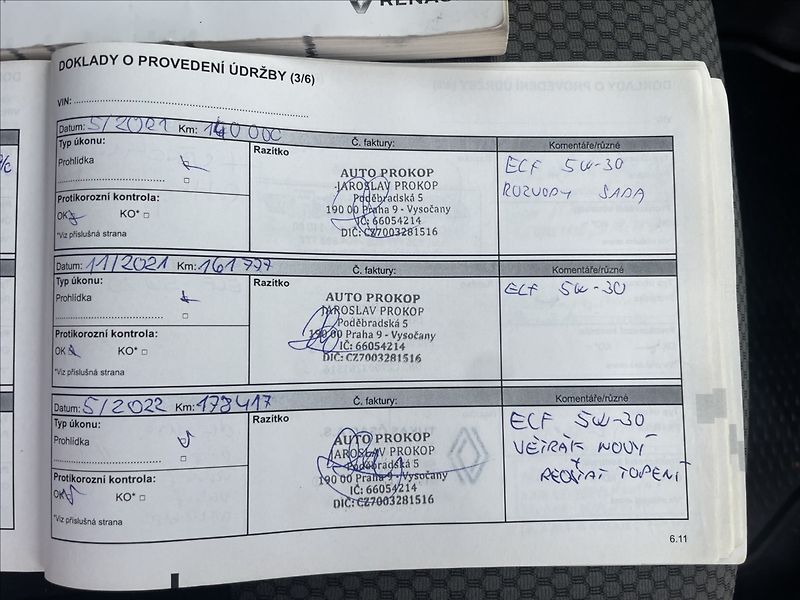 RENAU
DOKLADY O PROVEDENÍ ÚDRŽBY (3/6)
VIN:
Datum: 5/2021 Km: 140 000 Č. faktury: Komentáře/různé
Typ úkonu:
Prohlídka
Protikorozní kontrola:
OK KO* □
*Viz příslušná strana
Razítko
AUTO PROKOP
JAROSLAV PROKOP
Poděbradská 5
190 00 Praha 9 - Vysočany
IČ: 66054214
DIČ: CZ7003281516
ELF 5W-30
ROZVODY SADA
Datum: 11/2021 Km: 161 777 Č. faktury: Komentáře/různé
Typ úkonu:
Prohlídka
Protikorozní kontrola:
OK KO* □
*Viz příslušná strana
Razítko
AUTO PROKOP
JAROSLAV PROKOP
Poděbradská 5
190 00 Praha 9 - Vysočany
IČ: 66054214
DIČ: CZ7003281516
ELF 5W-30
Datum: 5/2022 Km: 173417 Č. faktury: Komentáře/různé
Typ úkonu:
Prohlídka
Protikorozní kontrola:
OK KO* □
*Viz příslušná strana
Razítko
AUTO PROKOP
JAROSLAV PROKOP
Poděbradská 5
190 00 Praha 9 - Vysočany
IČ: 66054214
DIČ: CZ7003281516
ELF 5W-30
VĚTRÁK NOVÝ
TOPENÍ
6.11